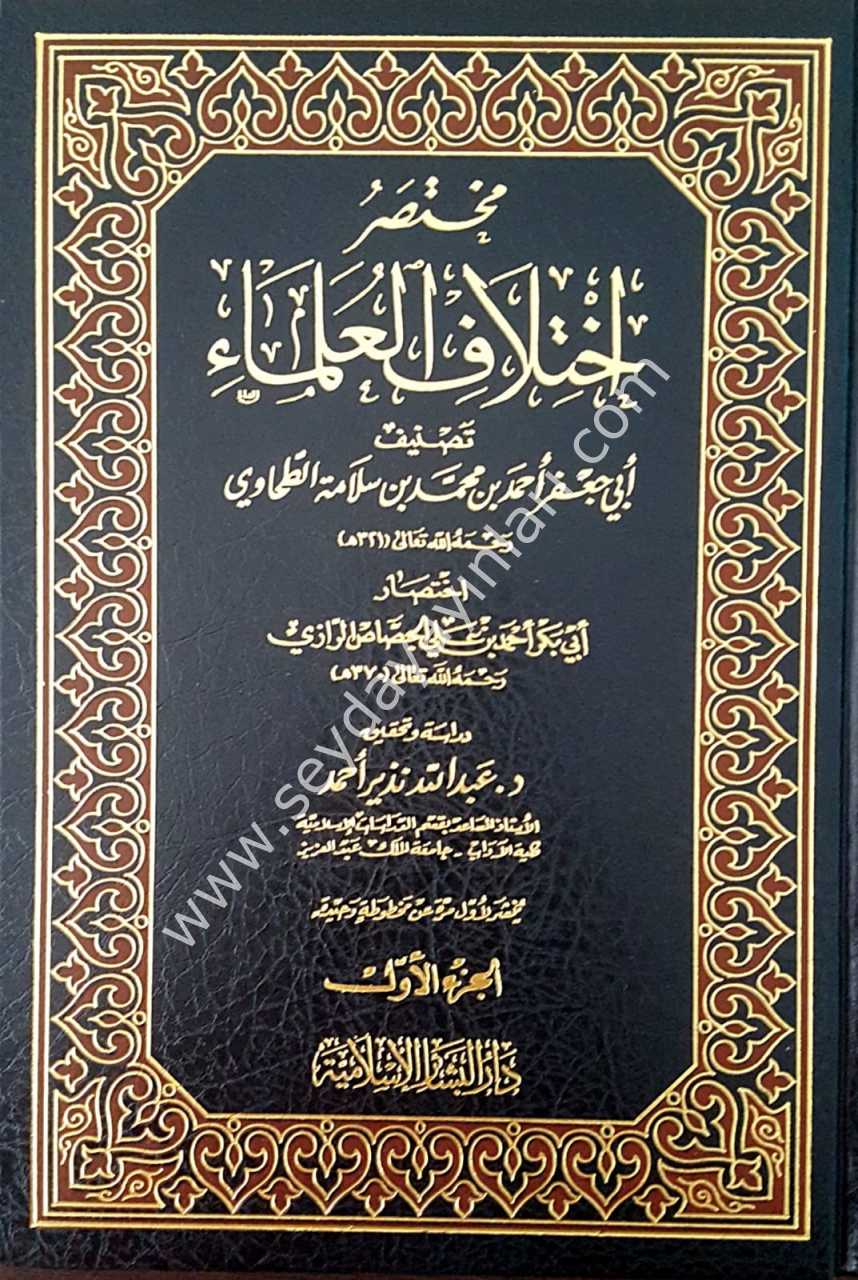 مختصر
إختلاف العلماء
تصنيف
أبي جعفر أحمد بن محمد بن سلامة الطحاوي
رحمه الله تعالى (٣٢١هـ)
اختصار
أبي بكر أحمد بن علي الجصاص الرازي
رحمه الله تعالى (٣٧٠هـ)
دراسة وتحقيق
د. عبد الله نذير أحمد
الأستاذ المساعد بقسم الدراسات الإسلامية
كلية الآداب - جامعة الملك عبد العزيز
لأول مرة عن مخطوطة وحيدة
الجزء الأول
دار البشائر الإسلامية
www.seydayayinlari.com